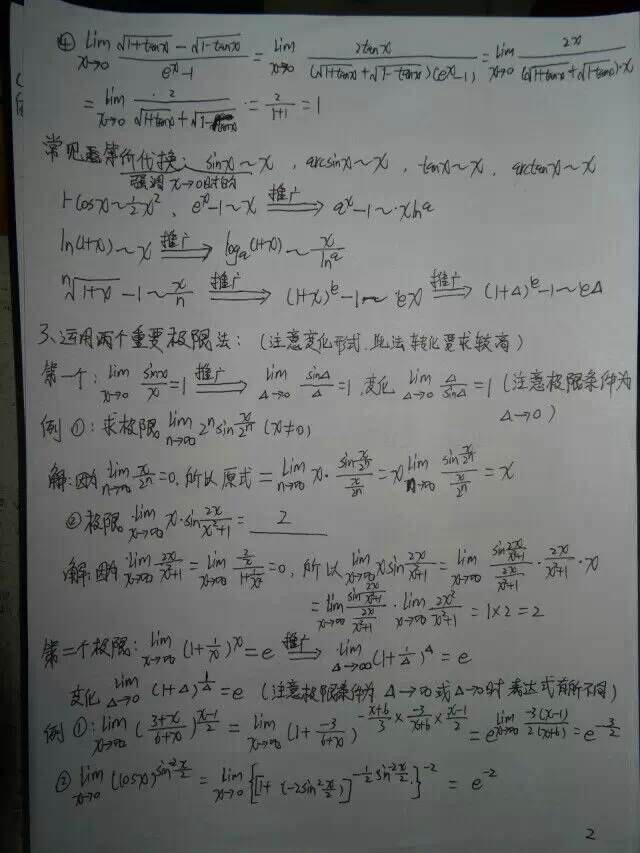 ④ lim_{x→0} (√(1+tanx) − √(1−tanx))/(e^x−1) = lim_{x→0} 2tanx/((√(1+tanx)+√(1−tanx))(e^x−1)) = lim_{x→0} 2x/((√(1+tanx)+√(1−tanx))·x)
= lim_{x→0} 2/(√(1+tanx)+√(1−tanx)) = 2/(1+1) = 1
常见等价代换: sinx~x , arcsinx~x , tanx~x , arctanx~x
强调 x→0时的
1-cosx~½x², e^x−1~x 推广⟹ a^x−1~xlna
ln(1+x)~x 推广⟹ log_a(1+x)~x/lna
ⁿ√(1+x) −1~x/n 推广⟹ (1+x)^k−1~kx 推广⟹ (1+Δ)^k−1~kΔ
3、运用两个重要极限法: (注意变化形式,此法转化要求较高)
第一个: lim_{x→0} sinx/x =1 推广⟹ lim_{Δ→0} sinΔ/Δ =1,变化 lim_{Δ→0} Δ/sinΔ =1 (注意极限条件为
Δ→0)
例①:求极限 lim_{n→∞} 2ⁿsin(x/2ⁿ) (x≠0)
解:因为 lim_{n→∞} x/2ⁿ=0,所以原式= lim_{n→∞} x·sin(x/2ⁿ)/(x/2ⁿ) = x lim_{n→∞} sin(x/2ⁿ)/(x/2ⁿ) = x
②极限 lim_{x→∞} x·sin(2x/(x²+1)) = 2
解:因为 lim_{x→∞} 2x/(x²+1) = lim_{x→∞} (2/x)/(1+1/x²) =0, 所以 lim_{x→∞} xsin(2x/(x²+1)) = lim_{x→∞} sin(2x/(x²+1))/(2x/(x²+1)) · 2x/(x²+1) · x
= lim_{x→∞} sin(2x/(x²+1))/(2x/(x²+1)) · lim_{x→∞} 2x²/(x²+1) = 1×2 = 2
第二个极限: lim_{x→∞} (1+1/x)^x = e 推广⟹ lim_{Δ→∞} (1+1/Δ)^Δ = e
变化 lim_{Δ→0} (1+Δ)^{1/Δ} = e (注意极限条件为 Δ→∞ 或 Δ→0时表达式有所不同)
例①: lim_{x→∞} ((3+x)/(6+x))^{(x−1)/2} = lim_{x→∞} (1+ −3/(6+x))^{−(x+6)/3 × −3/(x+6) × (x−1)/2} = e^{lim_{x→∞} −3(x−1)/(2(x+6))} = e^{−3/2}
② lim_{x→0} (cosx)^{sin^{-2}(x/2)} = lim_{x→0} {[1+(−2sin²(x/2))]^{−½sin^{-2}(x/2)}}^{−2} = e^{−2}
2